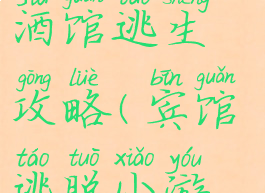 jiǔ guǎn táo shēng
酒馆逃生
gōng lüè ( bīn guǎn
攻略(宾馆
táo tuō xiǎo yóu
逃脱小游